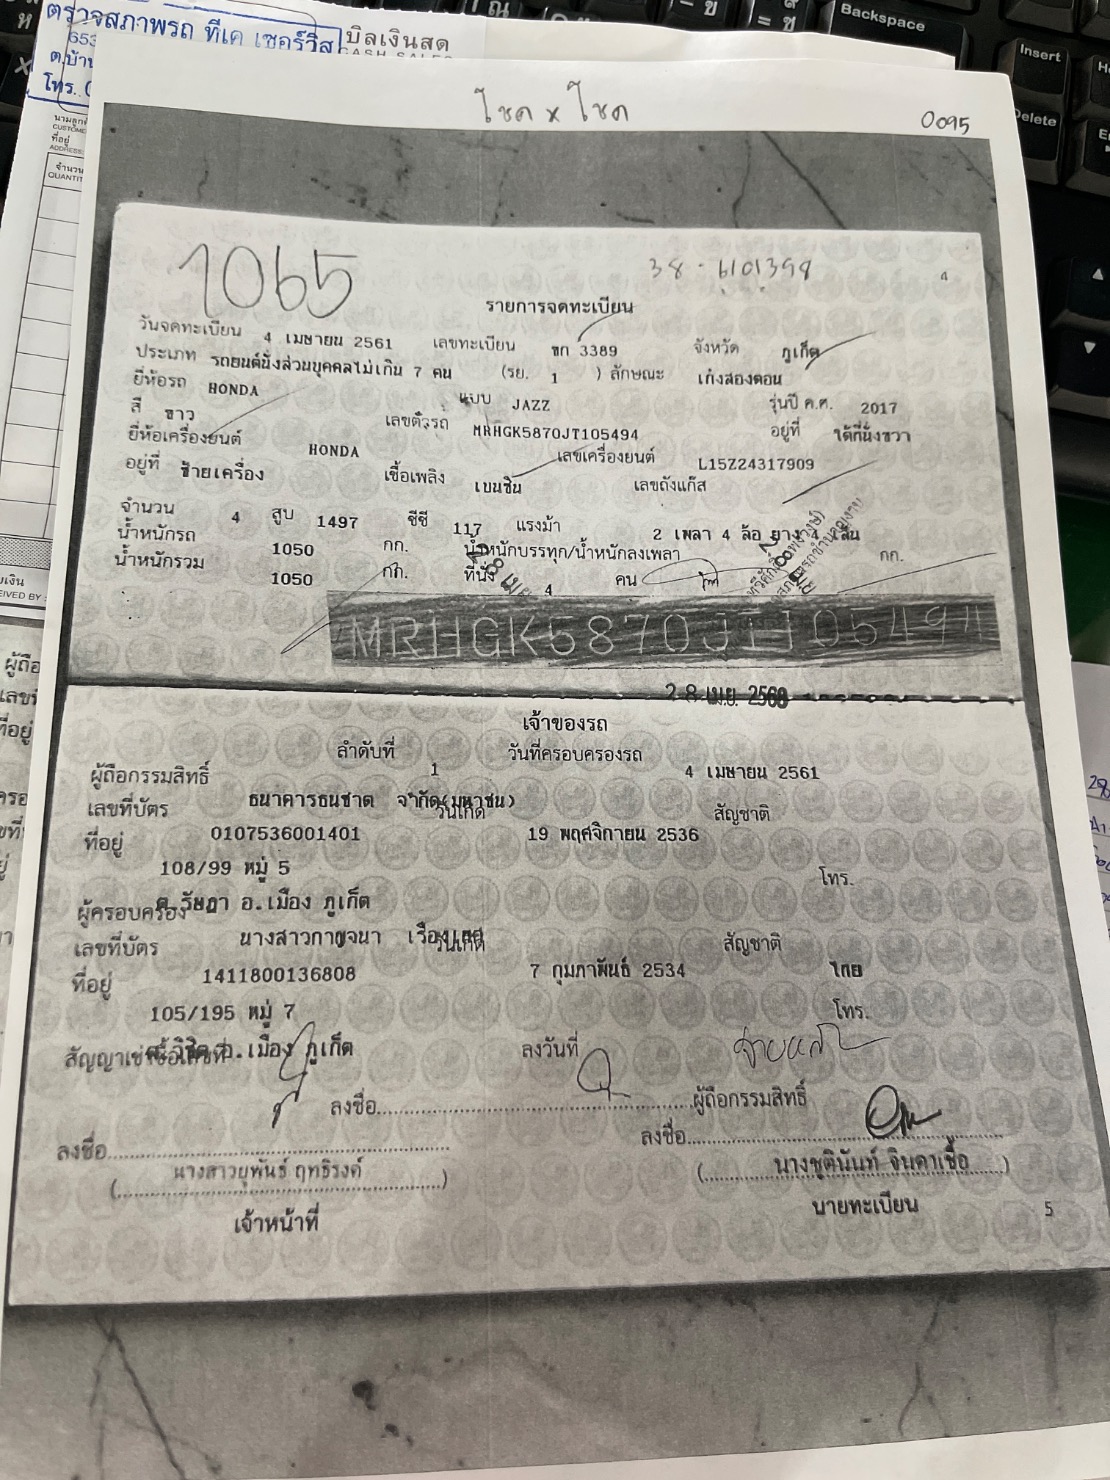 ตรวจสภาพรถ ทีเค เซอร์วิส
บิลเงินสด
โทร.
โชค x โชค
0095
1065
38 - 6101398
4
รายการจดทะเบียน
วันจดทะเบียน 4 เมษายน 2561 เลขทะเบียน ขก 3389 จังหวัด ภูเก็ต
ประเภท รถยนต์นั่งส่วนบุคคลไม่เกิน 7 คน (รย. 1 ) ลักษณะ เก๋งสองตอน
ยี่ห้อรถ HONDA แบบ JAZZ รุ่นปี ค.ศ. 2017
สี ขาว เลขตัวรถ MRHGK5870JT105494 อยู่ที่ ใต้ที่นั่งขวา
ยี่ห้อเครื่องยนต์ HONDA เลขเครื่องยนต์ L15Z24317909
อยู่ที่ ซ้ายเครื่อง เชื้อเพลิง เบนซิน เลขถังแก๊ส
จำนวน 4 สูบ 1497 ซีซี 117 แรงม้า 2 เพลา 4 ล้อ ยาง 4 เส้น
น้ำหนักรถ 1050 กก. น้ำหนักบรรทุก/น้ำหนักลงเพลา กก.
น้ำหนักรวม 1050 กก. ที่นั่ง 4 คน
MRHGK5870JT105494
28 เม.ย. 2568
เจ้าของรถ
ลำดับที่ 1 วันที่ครอบครองรถ 4 เมษายน 2561
ผู้ถือกรรมสิทธิ์ ธนาคารธนชาต จำกัด(มหาชน)
เลขที่บัตร 0107536001401 วันเกิด 19 พฤศจิกายน 2536 สัญชาติ
ที่อยู่ 108/99 หมู่ 5
ต.รัษฎา อ.เมือง ภูเก็ต โทร.
ผู้ครอบครอง นางสาวกาญจนา
เลขที่บัตร 1411800136808 วันเกิด 7 กุมภาพันธ์ 2534 สัญชาติ ไทย
ที่อยู่ 105/195 หมู่ 7
ต.วิชิต อ.เมือง ภูเก็ต โทร.
สัญญาเช่าซื้อเลขที่ ลงวันที่
ลงชื่อ ผู้ถือกรรมสิทธิ์
ลงชื่อ ลงชื่อ
(นางสาวยุพันธ์ ฤทธิรงค์) (นางชุตินันท์ จินดาเชื้อ)
เจ้าหน้าที่ นายทะเบียน
5
Backspace
Insert
Delete